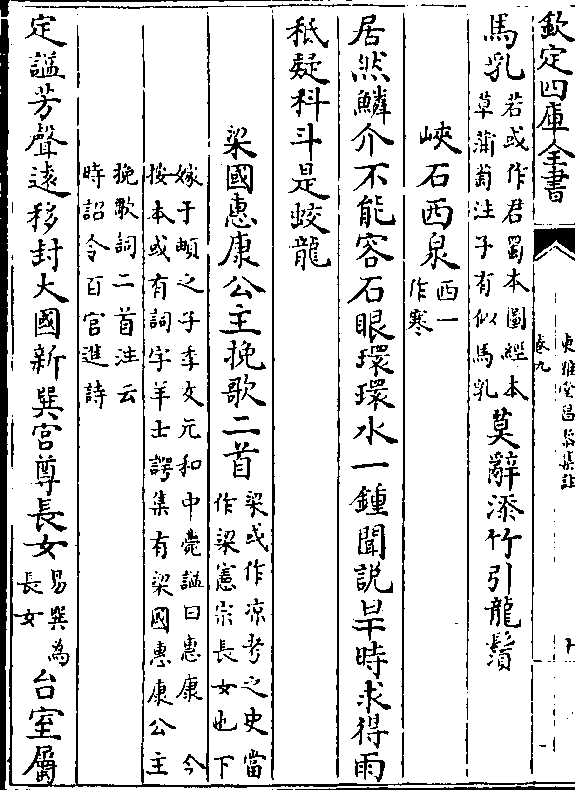 欽定四庫全書
東雅堂昌黎集註
卷九
馬乳
若或作君蜀本圖經本
草蒲萄注子有似馬乳
莫辭添竹引龍鬚
峽石西泉
西一
作寒
居然鱗介不能容石眼環環水一鍾聞說旱時求得雨
秖疑科斗是蛟龍
梁國惠康公主挽歌二首
梁或作凉考之史當
作梁憲宗長女也下
嫁于頔之子季友元和中薨諡曰惠康 今
按本或有詞字羊士諤集有梁國惠康公主
挽歌詞二首注云
時詔令百官進詩
定諡芳聲遠移封大國新巽宮尊長女
易巽為
長女
台室屬